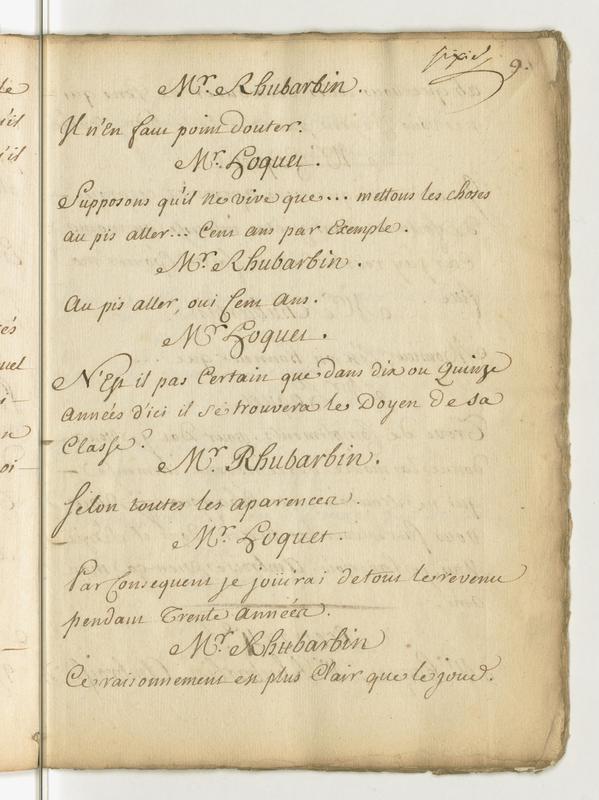 9.
Mr. Rhubarbin.
Il n'En faut point douter.
Mr. Hoquet.
Supposons qu'il ne vive que... mettons les choses
au pis aller... Cent ans par Exemple.
Mr. Rhubarbin.
Au pis aller, oui Cent Ans.
Mr Hoquet.
N'Est il pas Certain que dans dix ou Quinze
Années d'ici il se trouvera le Doyen de sa
Classe?
Mr. Rhubarbin.
Selon toutes les aparences.
Mr. Hoquet.
Par Consequent je joüirai de tout le revenu
pendant Trente Années.
Mr. Rhubarbin
Ce raisonnement est plus Clair que le jour.